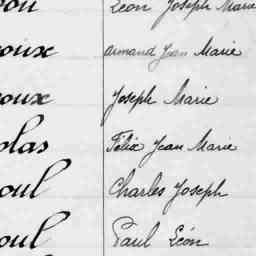 Léon Joseph Marie
oux Armand Jean Marie
oux Joseph Marie
olas Félix Jean Marie
oul Charles Joseph
oul Paul Léon